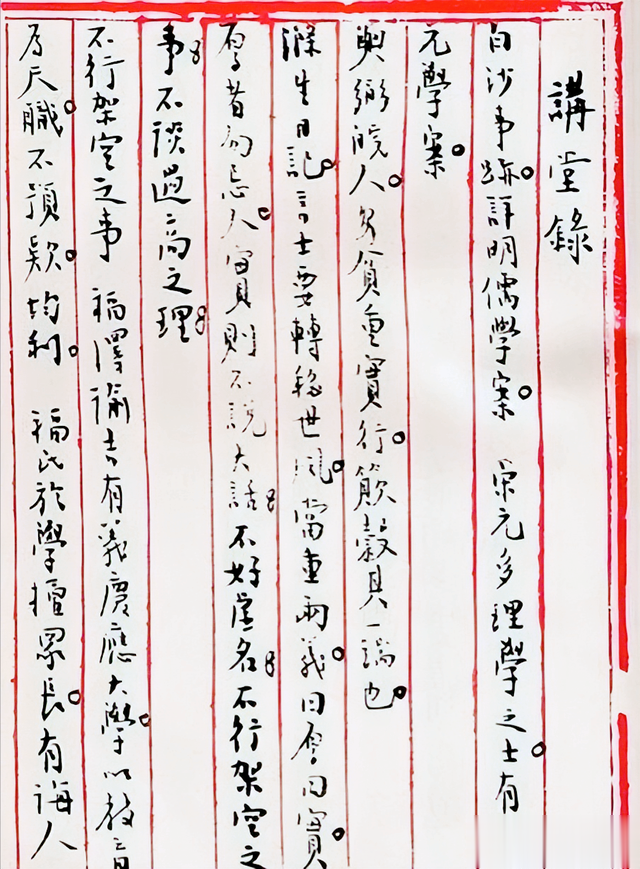 講堂錄
白沙事跡。詳明儒學案。 宋元多理學之士。有
元學案。
與弼皖人。貧重實行。簸穀其一端也。
滌生日記。言士要轉移世風。當重兩義。曰厚曰實。
厚者勿忌人。實則不說大話。不好虛名。不行架空之
事。不談過高之理。
不行架空之事 福澤諭吉有義慶應大學。以教育
為天職。不預。均利。 福氏於學擅眾長。有誨人